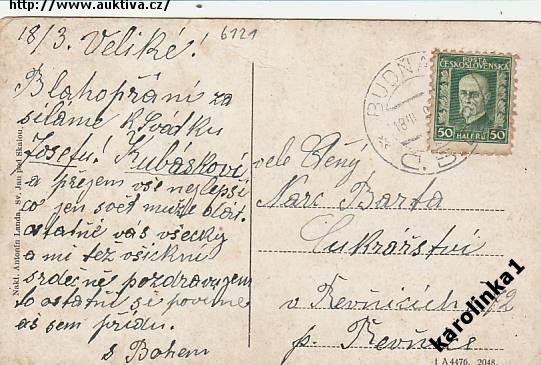 http://www.auktiva.cz/
18/3. Veliké!
6121
Blahopřání za
síláme k svátku
Josefu! Kubáskovi
a přejem vše nejlepší
co jen svět může dát.
ostatně vas všecky
a mi též všickni
srdečně pozdravujem
to ostatní si povíme
až sem přídu.
s Bohem
vele Ctěný
Narc Barta
Cukrářství
v Řevnicích 12
p. Řevnice
POŠTA
ČESKOSLOVENSKÁ
50 HALÉŘŮ 50
BUDŇANY
18.III.
Nakl. Antonín Landa, Sv. Jan pod Skalou.
1 A 4476, 2048.
karolinka1